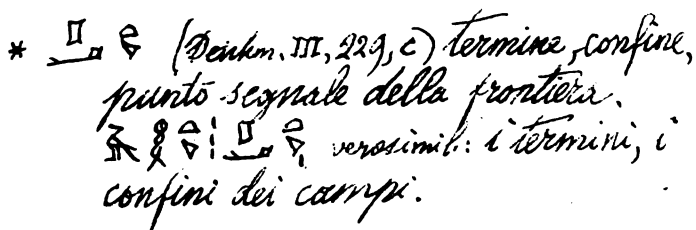 * (Denkm. III, 229, c) termine, confine,
punto segnale della frontiera.
verosimil.: i termini, i
confini dei campi.